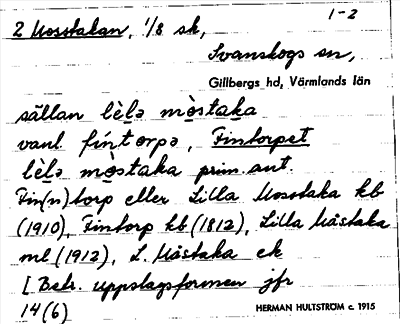 1-2
2 Mosstakan, 1/8 sk,
Svanskogs sn,
Gillbergs hd, Värmlands län
sällan lèlə mòstaka
vanl. fíntorpə, Fintorpet
lèlə mòstaka prim. ant.
Fin(n)torp eller Lilla Mosstaka kb
(1910), Fintorp kb (1812), Lilla Måstaka
ml (1912), L. Måstaka ek
[Betr. uppslagsformen jfr
14(6)
HERMAN HULTSTRÖM c. 1915